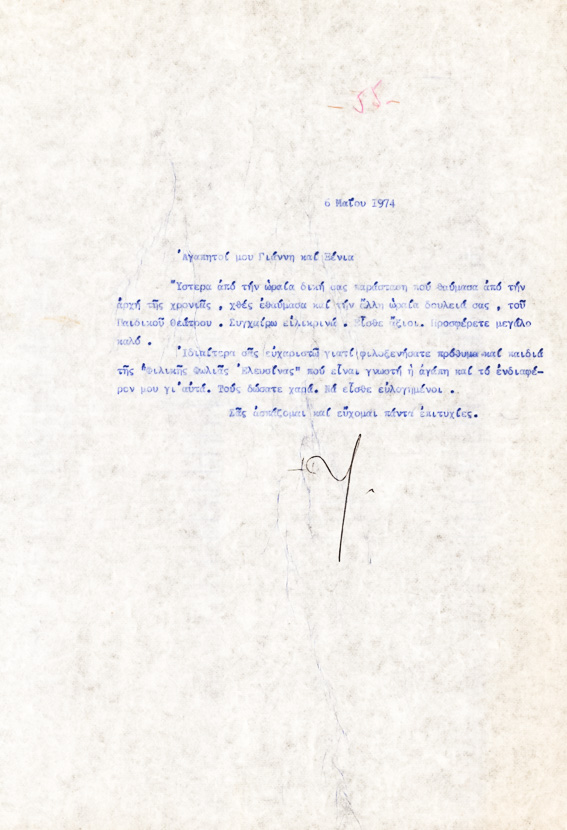 - 55 -
6 Μαΐου 1974
Ἀγαπητοί μου Γιάννη καί Ξένια
Ὕστερα ἀπό τήν ὡραία δική σας παράσταση πού θαύμασα ἀπό τήν
ἀρχή τῆς χρονιᾶς , χθές ἐθαύμασα καί τήν ἄλλη ὡραία δουλειά σας , τοῦ
Παιδικοῦ Θεάτρου . Συγχαίρω εἰλικρινά . Εἶσθε ἄξιοι. Προσφέρετε μεγάλο
καλό .
Ἰδιαίτερα σᾶς εὐχαριστῶ γιατί φιλοξενήσατε πρόθυμα καί παιδιά
τῆς "Φιλικῆς Φωλιᾶς Ἐλευσίνας" πού εἶναι γνωστή ἡ ἀγάπη καί τό ἐνδιαφέ-
ρον μου γι᾽αὐτά. Τούς δώσατε χαρά. Νά εἶσθε εὐλογημένοι .
Σᾶς ἀσπάζομαι καί εὔχομαι πάντα ἐπιτυχίες.